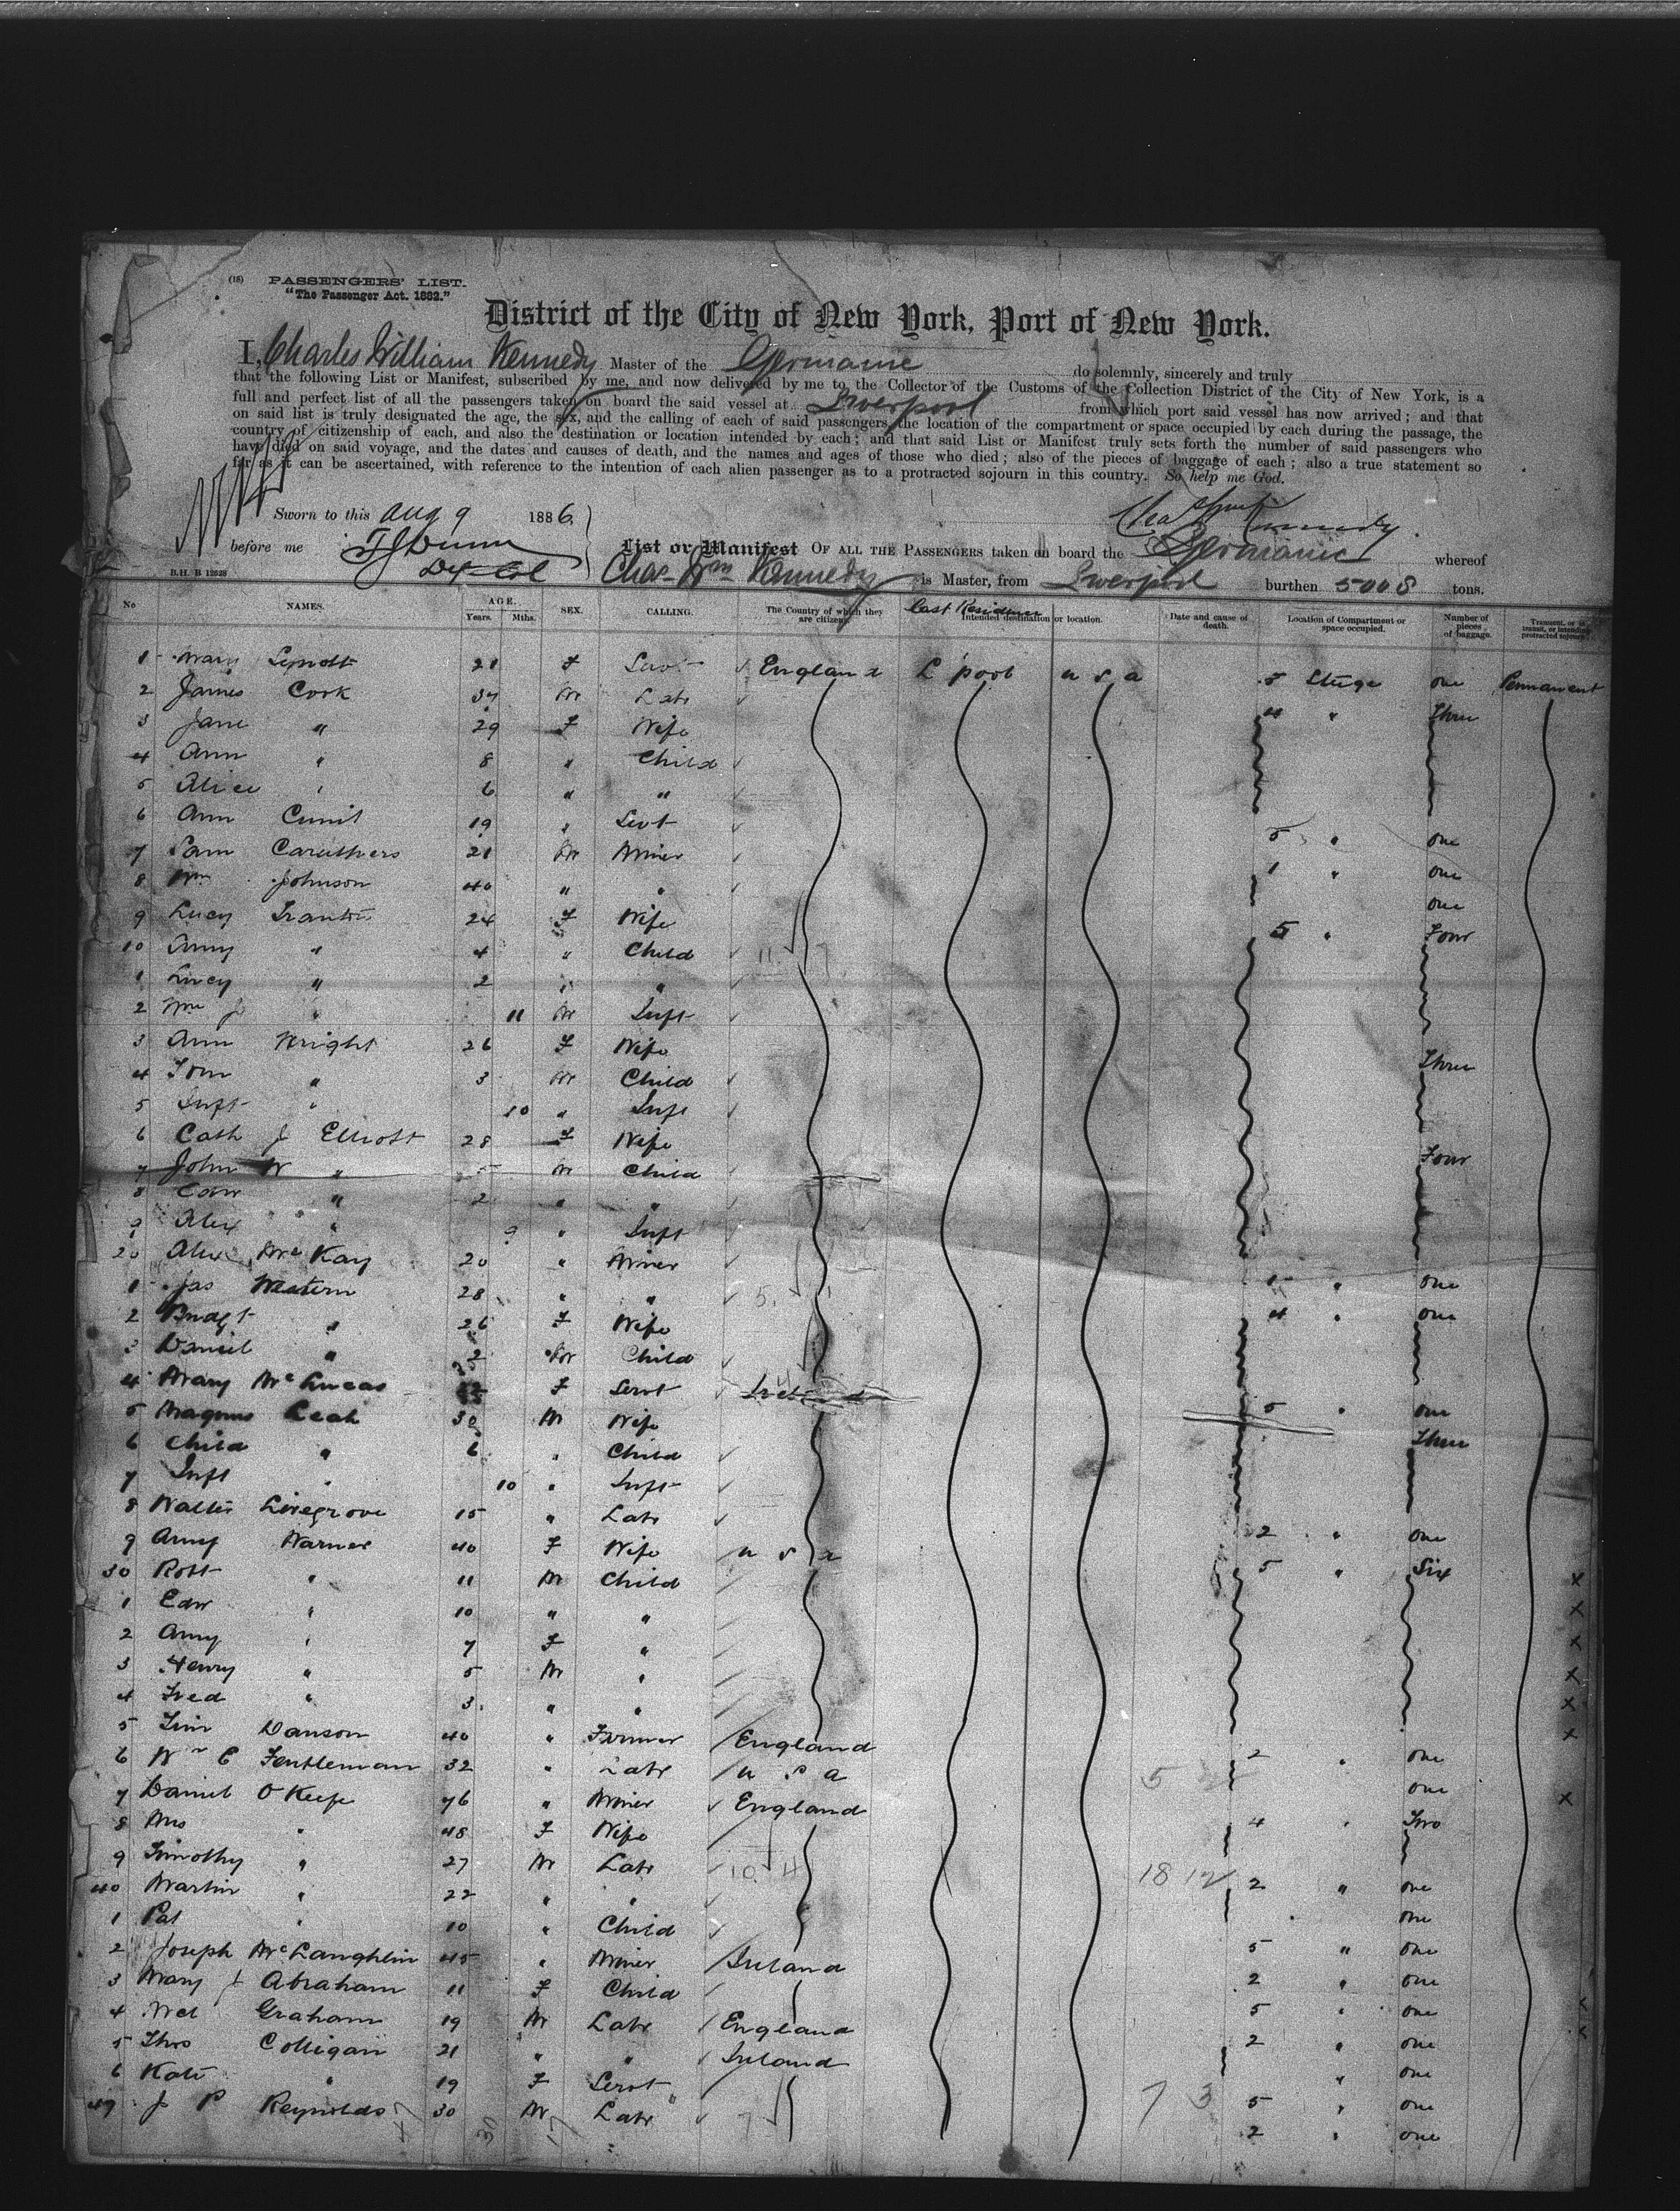 (18) PASSENGERS' LIST.
"The Passenger Act. 1882."
District of the City of New York, Port of New York.
I, Charles William Kennedy Master of the Germanic do solemnly, sincerely and truly
that the following List or Manifest, subscribed by me, and now delivered by me to the Collector of the Customs of the Collection District of the City of New York, is a
full and perfect list of all the passengers taken on board the said vessel at Liverpool from which port said vessel has now arrived; and that
on said list is truly designated the age, the sex, and the calling of each of said passengers, the location of the compartment or space occupied by each during the passage, the
country of citizenship of each, and also the destination or location intended by each; and that said List or Manifest truly sets forth the number of said passengers who
have died on said voyage, and the dates and causes of death, and the names and ages of those who died; also of the pieces of baggage of each; also a true statement so
far as it can be ascertained, with reference to the intention of each alien passenger as to a protracted sojourn in this country. So help me God.
Sworn to this Aug 9 1886
Chas Wm Kennedy
before me T J Dunn
List or Manifest OF ALL THE PASSENGERS taken on board the Germanic whereof
B.H. B 12628 Dy Col Chas Wm Kennedy is Master, from Liverpool burthen 5008 tons.
No NAMES. AGE. Years. Mths. SEX. CALLING. The Country of which they are citizens. Last Residence Intended destination or location. Date and cause of death. Location of Compartment or space occupied. Number of pieces of baggage. Transient, or in transit, or intending protracted sojourn
1 Mary 21 F Servt England L'pool U S A 5 Sterge one Permanent
2 James Cook 37 M Labr 4 " Three
3 Jane " 29 F Wife
4 Ann " 8 " Child
5 Alice " 6 " "
6 Ann 19 " Servt 5 " one
7 Sam Caruthers 21 M Miner 1 " one
8 Wm Johnson 40 " " one
9 Lucy 24 F Wife 5 " Four
10 Amy " 4 " Child 11 7
1 Lucy " 2 " "
2 Wm J " 11 M Inft
3 Ann Wright 26 F Wife Three
4 Tom " 3 M Child
5 Inft " 10 " Inft
6 Cath J Elliott 28 F Wife Four
7 John W " 5 M Child
8 Edw " 2 " "
9 Alex " 9 " Inft
20 Alex McKay 20 " Miner 1 " one
1 Jas Western 28 " " 5 1 4 " one
2 Bridgt " 26 F Wife
3 Daniel " 2 M Child
4 Mary McLucas F Servt Ireland 5 " one
5 Magnus Leah 30 M Wife Three
6 Child " 6 " Child
7 Inft " 10 " Inft
8 Walter Livegrove 15 " Labr 2 " one
9 Amy Warner 40 F Wife U S A 5 " Six x
30 Robt " 11 M Child x
1 Edw " 10 " " x
2 Amy " 7 F " x
3 Henry " 5 M " x
4 Fred " 3 " " x
5 Tim Danson 40 " Farmer England 2 " one
6 Wm C Fentleman 32 " Labr U S A 5 one x
7 Daniel O'Keefe 76 " Miner England 4 " Two
8 Mrs " 48 F Wife
9 Timothy " 27 M Labr 10 4 18 12 2 " one
40 Martin " 22 " " one
1 Pat " 10 " Child 5 " one
2 Joseph McLaughlin 45 " Miner Ireland 2 " one
3 Mary J Abraham 11 F Child 5 " one
4 Graham 19 M Labr England 2 " one
5 Thos Colligan 21 " " Ireland " one
6 Kate " 19 F Servt 7 3 5 " one
47 J P Reynolds 30 M Labr 7 2 " one
47 30 17